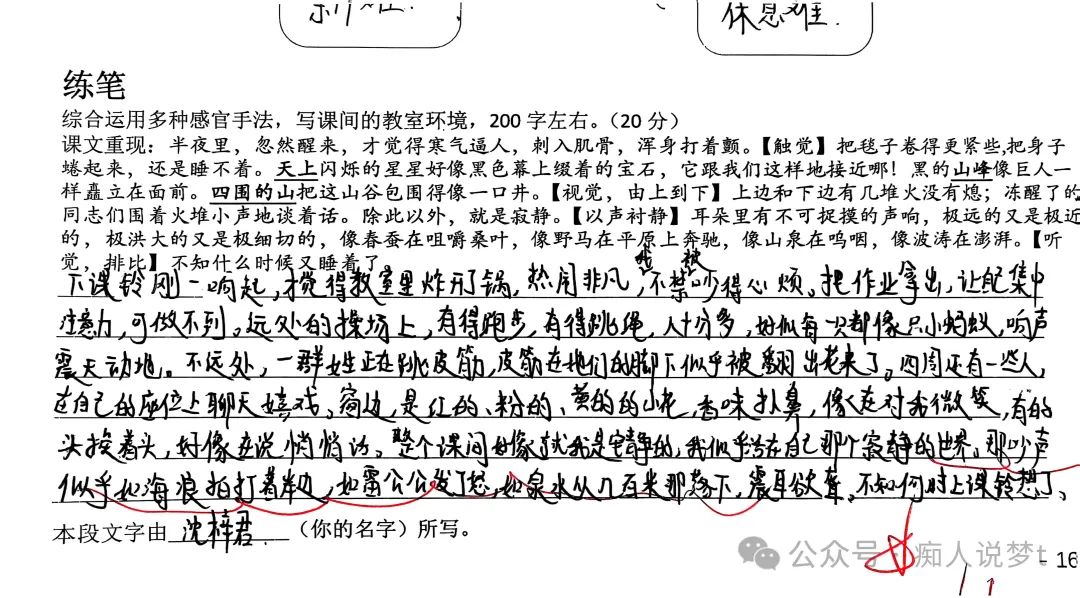 休息难.
练笔
综合运用多种感官手法，写课间的教室环境，200 字左右。（20 分）
课文重现：半夜里，忽然醒来，才觉得寒气逼人，刺入肌骨，浑身打着颤。【触觉】把毯子卷得更紧些,把身子
蜷起来，还是睡不着。天上闪烁的星星好像黑色幕上缀着的宝石，它跟我们这样地接近哪！黑的山峰像巨人一
样矗立在面前。四围的山把这山谷包围得像一口井。【视觉，由上到下】上边和下边有几堆火没有熄；冻醒了的
同志们围着火堆小声地谈着话。除此以外，就是寂静。【以声衬静】耳朵里有不可捉摸的声响，极远的又是极近
的，极洪大的又是极细切的，像春蚕在咀嚼桑叶，像野马在平原上奔驰，像山泉在呜咽，像波涛在澎湃。【听
觉，排比】不知什么时候又睡着了。
下课铃刚一响起，才觉得教室里炸开了锅，热闹非凡，我不禁被吵得心烦。把作业拿出，让自己集中
注意力，可做不到。远处的操场上，有得跑步，有得跳绳，人十分多，好似每一只都像只小蚂蚁，响声
震天动地。不远处，一群女生正在跳皮筋，皮筋在她们的脚下似乎被翻出花来了。四周还有一些人，
在自己的座位上聊天嬉戏。窗边，是红的、粉的、黄的的小花，香味扑鼻，像在对我微笑，有的
头挨着头，好像在说悄悄话。整个课间好像就我是安静的，我似乎活在自己那个寂静的世界，那吵声
似乎如海浪拍打着岸边，如雷公公发了怒，如泉水从几百米那落下，震耳欲聋。不知何时上课铃想了。
本段文字由 沈梓君. （你的名字）所写。
公众号 · 痴人说梦t
- 16